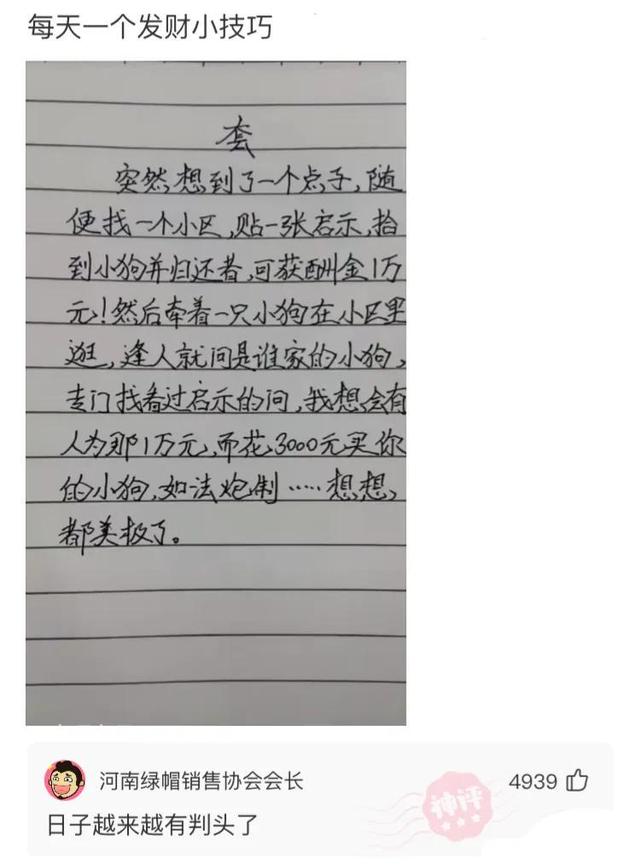 每天一个发财小技巧
套
突然想到了一个点子,随
便找一个小区,贴一张启示,拾
到小狗并归还者,可获酬金1万
元!然后牵着一只小狗在小区里
逛,逢人就问是谁家的小狗,
专门找看过启示的问,我想会有
人为那1万元,而花3000元买你
的小狗,如法炮制……想想,
都美极了。
河南绿帽销售协会会长
4939
日子越来越有判头了
神评